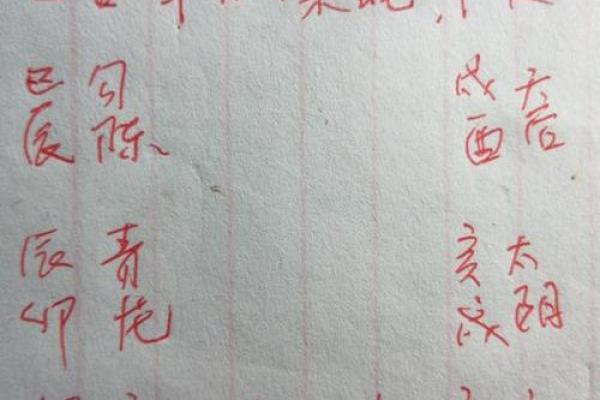 巳勾 戌天
辰陈、 酉后
辰青 亥太
卯龙 戌阴